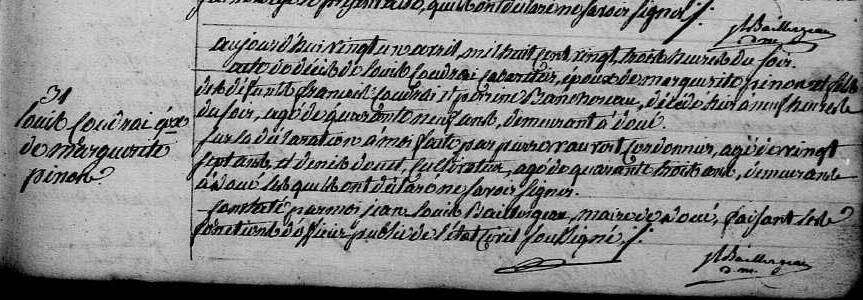 signé ./.
jl Baillergeau
m.
aujourd'hui vingt un avril, mil huit cent vingt, trois heures du soir.
acte de décès de louis Coudrai sabottier, époux de marguerite pinon et fils
de défunt francois Coudrai et perrine Banchereau, décédé hier a neuf heures
du soir, agé de quarante neuf ans, demeurant à doué
sur la déclaration à moi faite par pierre Cordonnier, agé de vingt
sept ans, et denis cultivateur, agé de quarante trois ans, demeurants
à doué lesquels ont déclaré ne savoir signer.
Constaté par moi jean louis Baillergeau, maire de doué, faisant les
fonctions d'officier public de l'état civil soussigné ./.
jl Baillergeau
m.
31
louis Coudrai époux
de marguerite
pinon